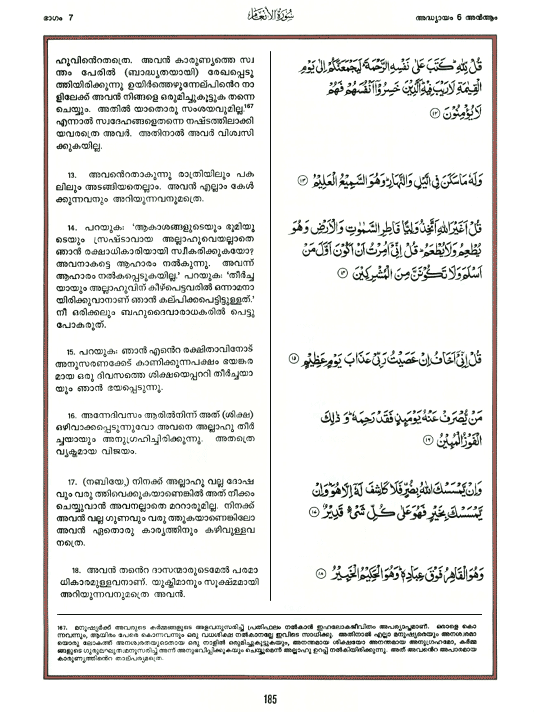 ഭാഗം 7
سُورَةُ الأَنْعَام
അദ്ധ്യായം 6 അൻആം
ഹുവിൻെറതത്രെ. അവൻ കാരുണ്യത്തെ സ്വ
ന്തം പേരിൽ (ബാദ്ധ്യതയായി) രേഖപ്പെടു
ത്തിയിരിക്കുന്നു ഉയിർത്തെഴുന്നേല്പിൻെറ നാ
ളിലേക്ക് അവൻ നിങ്ങളെ ഒരുമിച്ചുകൂട്ടുക തന്നെ
ചെയ്യും. അതിൽ യാതൊരു സംശയവുമില്ല.¹⁶⁷
എന്നാൽ സ്വദേഹങ്ങളെതന്നെ നഷ്ടത്തിലാക്കി
യവരത്രെ അവർ. അതിനാൽ അവർ വിശ്വസി
ക്കുകയില്ല.
13. അവൻെറതാകുന്നു രാത്രിയിലും പക
ലിലും അടങ്ങിയതെല്ലാം. അവൻ എല്ലാം കേൾ
ക്കുന്നവനും അറിയുന്നവനുമത്രെ.
14. പറയുക: 'ആകാശങ്ങളുടെയും ഭൂമിയൂ
ടെയും സ്രഷ്ടാവായ അല്ലാഹുവെയല്ലാതെ
ഞാൻ രക്ഷാധികാരിയായി സ്വീകരിക്കുകയോ?
അവനാകട്ടെ ആഹാരം നൽകുന്നു. അവന്ന്
ആഹാരം നൽകപ്പെടുകയില്ല.' പറയുക: 'തീർച്ച
യായും അല്ലാഹുവിന് കീഴ്പെട്ടവരിൽ ഒന്നാമനാ
യിരിക്കുവാനാണ് ഞാൻ കല്പിക്കപെട്ടിട്ടുള്ളത്.'
നീ ഒരിക്കലും ബഹുദൈവാരാധകരിൽ പെട്ടു
പോകരുത്.
15. പറയുക: ഞാൻ എൻെറ രക്ഷിതാവിനോട്
അനുസരണക്കേട് കാണിക്കുന്നപക്ഷം ഭയങ്കര
മായ ഒരു ദിവസത്തെ ശിക്ഷയെപ്പററി തീർച്ചയാ
യും ഞാൻ ഭയപ്പെടുന്നു.
16. അന്നേദിവസം ആരിൽനിന്ന് അത് (ശിക്ഷ)
ഒഴിവാക്കപ്പെടുന്നുവോ അവനെ അല്ലാഹു തീർ
ച്ചയായും അനുഗ്രഹിച്ചിരിക്കുന്നു. അതത്രെ
വ്യക്തമായ വിജയം.
17. (നബിയേ,) നിനക്ക് അല്ലാഹു വല്ല ദോഷ
വും വരു ത്തിവെക്കുകയാണെങ്കിൽ അത് നീക്കം
ചെയ്യുവാൻ അവനല്ലാതെ മററാരുമില്ല. നിനക്ക്
അവൻ വല്ല ഗുണവും വരു ത്തുകയാണെങ്കിലോ
അവൻ ഏതൊരു കാര്യത്തിനും കഴിവുള്ളവ
നത്രെ.
18. അവൻ തൻെറ ദാസന്മാരുടെമേൽ പരമാ
ധികാരമുള്ളവനാണ്. യുക്തിമാനും സൂക്ഷ്മമായി
അറിയുന്നവനുമത്രെ അവൻ.
قُلْ لِلَّهِ كَتَبَ عَلَى نَفْسِهِ الرَّحْمَةَ لَيَجْمَعَنَّكُمْ إِلَى يَوْمِ
الْقِيمَةِ لَا رَيْبَ فِيهِ الَّذِينَ خَسِرُوا أَنْفُسَهُمْ فَهُمْ
لَا يُؤْمِنُونَ ⑫
وَلَهُ مَا سَكَنَ فِي الَّيْلِ وَالنَّهَارِ وَهُوَ السَّمِيعُ الْعَلِيمُ ⑬
قُلْ أَغَيْرَ اللَّهِ أَتَّخِذُ وَلِيًّا فَاطِرِ السَّمٰوٰتِ وَالْأَرْضِ وَهُوَ
يُطْعِمُ وَلَا يُطْعَمُ قُلْ إِنِّي أُمِرْتُ أَنْ أَكُونَ أَوَّلَ مَنْ
أَسْلَمَ وَلَا تَكُونَنَّ مِنَ الْمُشْرِكِينَ ⑭
قُلْ إِنِّي أَخَافُ إِنْ عَصَيْتُ رَبِّي عَذَابَ يَوْمٍ عَظِيمٍ ⑮
مَنْ يُصْرَفْ عَنْهُ يَوْمَئِذٍ فَقَدْ رَحِمَهُ وَ ذٰلِكَ
الْفَوْزُ الْمُبِينُ ⑯
وَإِنْ يَمْسَسْكَ اللَّهُ بِضُرٍّ فَلَا كَاشِفَ لَهُ إِلَّا هُوَ وَإِنْ
يَمْسَسْكَ بِخَيْرٍ فَهُوَ عَلَى كُلِّ شَيْءٍ قَدِيرٌ ⑰
وَهُوَ الْقَاهِرُ فَوْقَ عِبَادِهِ وَهُوَ الْحَكِيمُ الْخَبِيرُ ⑱
167. മനുഷ്യർക്ക് അവരുടെ കർമ്മങ്ങളുടെ അളവനുസരിച്ച് പ്രതിഫലം നൽകാൻ ഇഹലോകജീവിതം അപര്യാപ്തമാണ്. ഒരാളെ കൊ
ന്നവനും, ആയിരം പേരെ കൊന്നവനും ഒരു വധശിക്ഷ നൽകാനല്ലേ ഇവിടെ സാധിക്കൂ. അതിനാൽ എല്ലാ മനുഷ്യരെയും അനശ്വരമാ
യൊരു ലോകത്ത് അനശ്വരതയുടേതായ ഒരു നാളിൽ ഒരുമിച്ചുകൂട്ടുകയും, അനന്തമായ ശിക്ഷയോ അനന്തമായ അനുഗ്രഹമോ, കർമ്മ
ങ്ങളുടെ ഗുരുലഘുത്വമനുസരിച്ച് അന്ന് അനുഭവിപ്പിക്കുകയും ചെയ്യുമെന്ന് അല്ലാഹു ഉറപ്പ് നൽകിയിരിക്കുന്നു. അത് അവൻെറ അപാരമായ
കാരുണ്യത്തിൻെറ താല്പര്യമത്രെ.
185